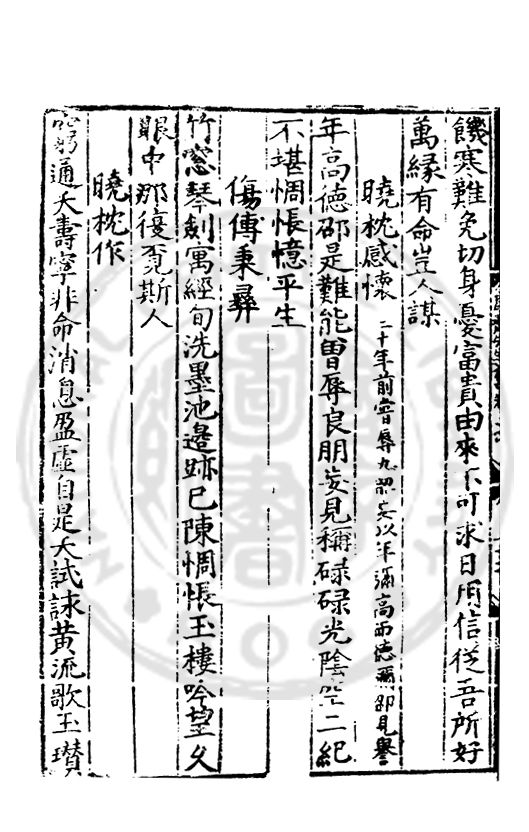 饑寒難免切身憂富貴由來不可求日用信從吾所好
萬緣有命豈人謀
曉枕感懷 二十年前嘗辱九 妄以年彌高而德彌卲見譽
年高德卲是難能曽辱良朋妄見稱碌碌光陰空二紀
不堪惆悵憶平生
傷傅秉彛
竹窓琴劍寓經旬洗墨池邊跡已陳惆悵玉樓吟望久
眼中那復覔斯人
曉枕作
窮通夭壽寧非命消息盈虛自是天試詠黄流歌玉瓚